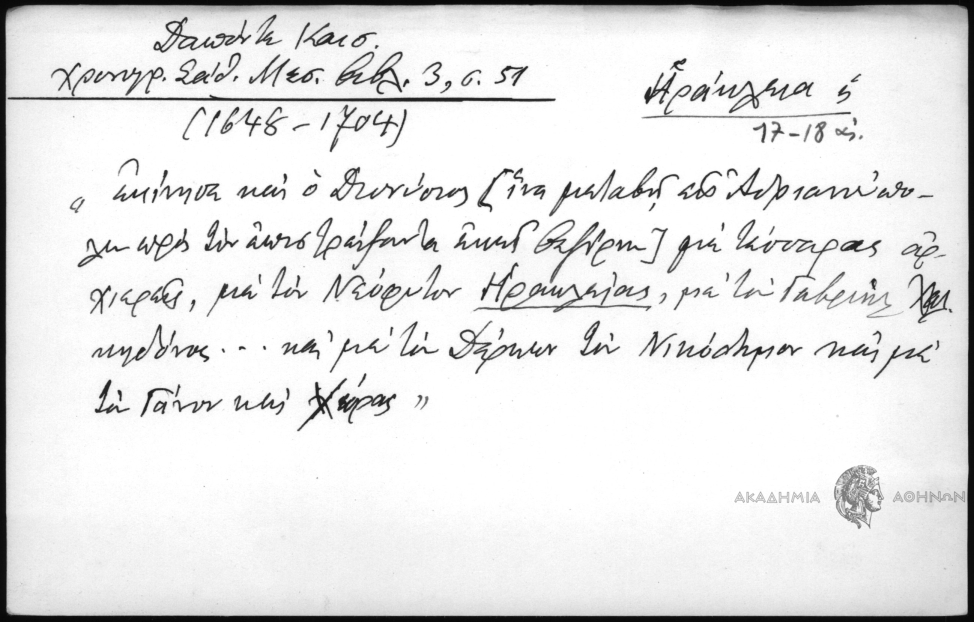 Δαπόντε Καισ.
Χρονογρ. Σάθ. Μεσ. βιβλ. 3, σ. 51
(1648-1704)
Ἡράκλεια ἡ
17-18 αἰ.
„ ἐκίνησε καὶ ὁ Διονύσιος [ἵνα μεταβῇ εἰς Ἀδριανούπο-
λιν πρὸς τὸν ἐπιστρέψαντα ἐκεῖ βεζίρην] μὲ τέσσαρας ἀρ-
χιερεῖς, μὲ τὸν Νεόφυτον Ἡρακλείας, μὲ τὸν Γαβριὴλ Χαλ-
κηδόνος... καὶ μὲ τὸν Δέρκων τὸν Νικόδημον καὶ μὲ
τὸν Γάνου καὶ Χώρας „
ΑΚΑΔΗΜΙΑ ΑΘΗΝΩΝ